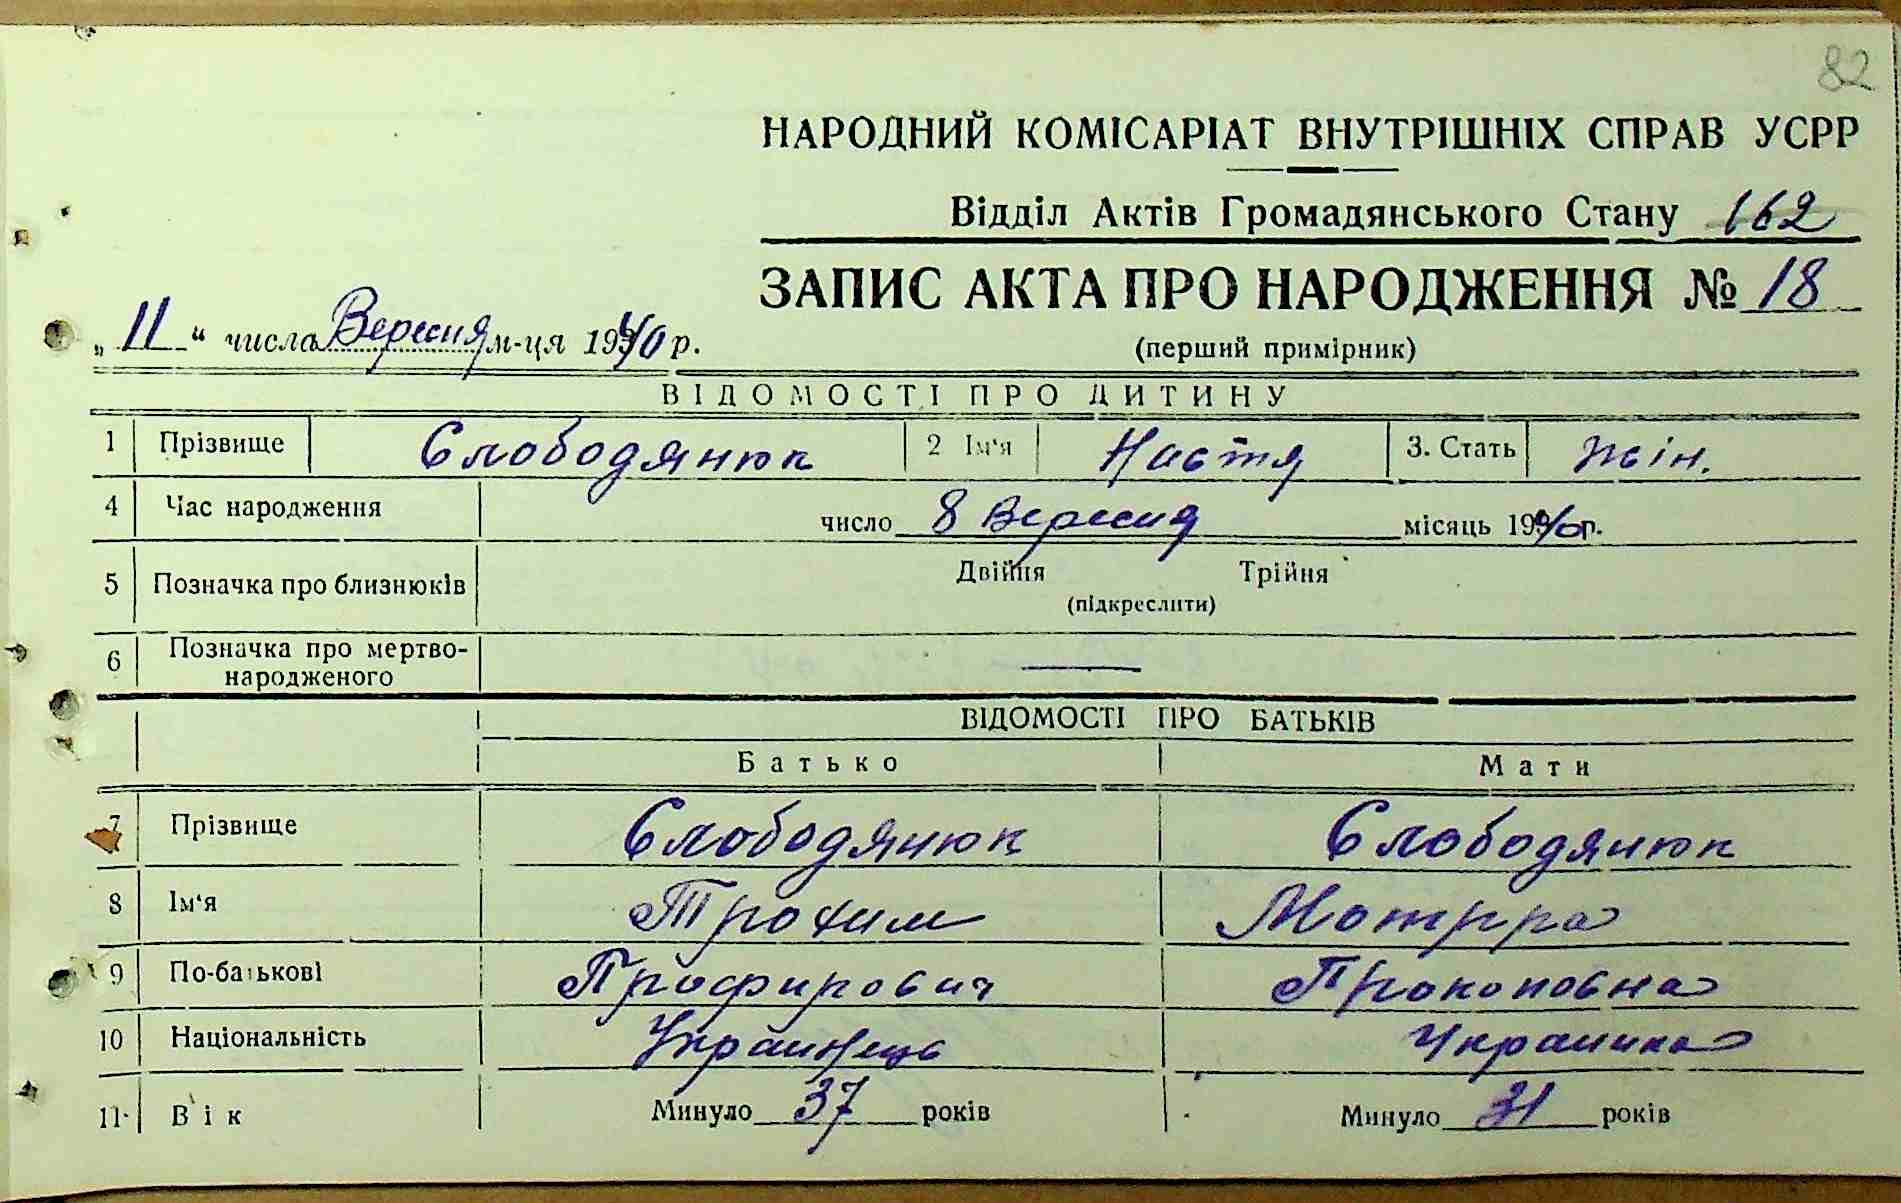 82
НАРОДНИЙ КОМІСАРІАТ ВНУТРІШНІХ СПРАВ УСРР
Відділ Актів Громадянського Стану 162
ЗАПИС АКТА ПРО НАРОДЖЕННЯ № 18
„ 11 “ числа Вересня м-ця 1940 р.
(перший примірник)
ВІДОМОСТІ ПРО ДИТИНУ
1 Прізвище Слободянюк 2 Ім‘я Настя 3. Стать жін.
4 Час народження число 8 Вересня місяць 1940 р.
5 Позначка про близнюків Двійня Трійня
(підкреслити)
6 Позначка про мертво-
народженого —
ВІДОМОСТІ ПРО БАТЬКІВ
Батько Мати
7 Прізвище Слободянюк Слободянюк
8 Ім‘я Трохим Мотрра
9 По-батькові Профирович Прокоповна
10 Національність Украинець Украинка
11 Вік Минуло 37 років Минуло 31 років